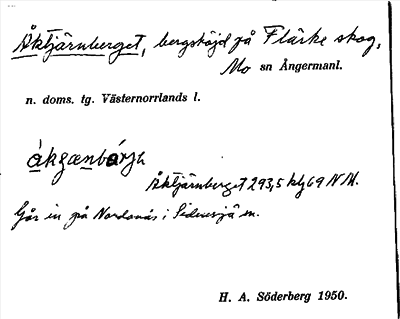 Åktjärnberget, bergshöjd på Flärke skog,
Mo sn Ångermanl.
n. doms. tg. Västernorrlands l.
Åktjärnberget 293,5 kbg 69 NM.
Går in på Nordanås i Sidensjö sn.
H. A. Söderberg 1950.